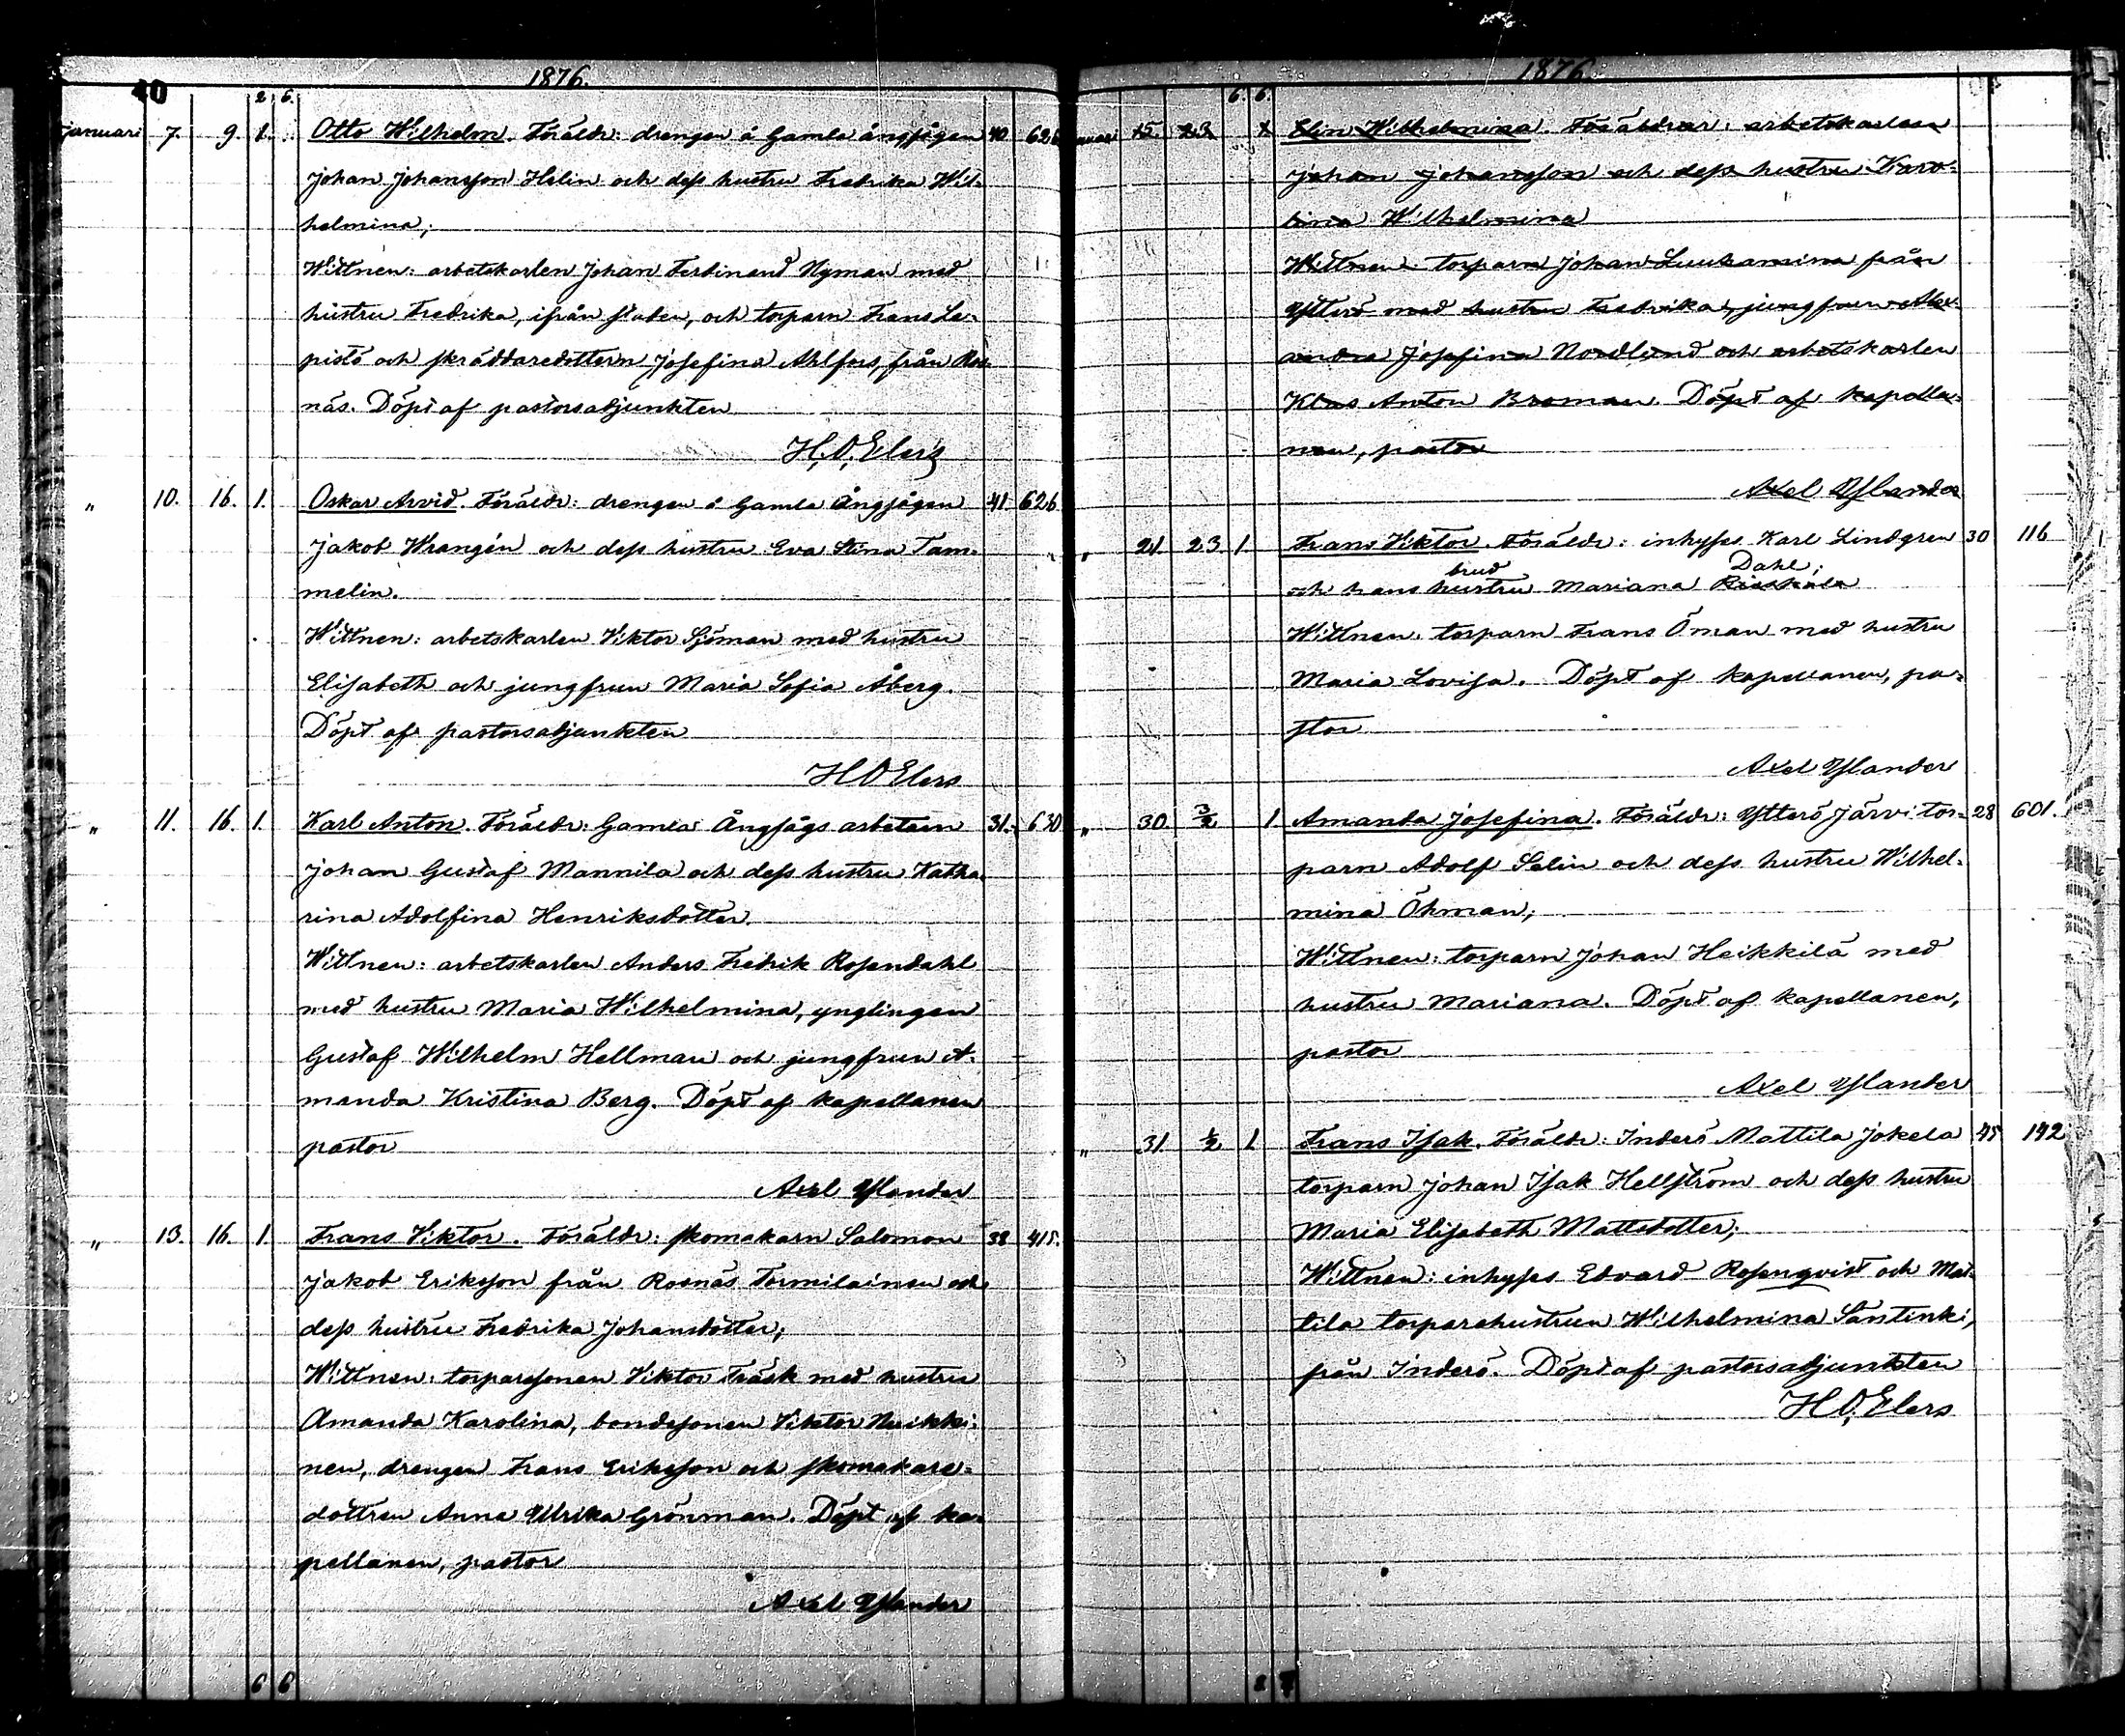 1876.
40
2 6.
januari 7. 9. 1. Otto Wilhelm. Föräldr: drengen å Gamla ångsågen 40 626
Johan Johansson Helin och dess hustru Fredrika Wil-
helmina;
Wittnen: arbetskarlen Johan Ferdinand Nyman med
hustru Fredrika, ifrån staden, och torparn Frans Le-
pistö och skräddaredottern Josefina Ahlfors, från Ros-
näs. Döpt af pastorsadjunkten
H. O. Elers
" 10. 16. 1. Oskar Arvid. Föräldr: drengen å Gamla Ångsågen 41 626
Jakob Wrangén och dess hustru Eva Stina Tam-
melin.
Wittnen: arbetskarlen Viktor Sjöman med hustru
Elisabeth och jungfrun Maria Sofia Åberg.
Döpt af pastorsadjunkten
H O Elers
" 11. 16. 1. Karl Anton. Föräldr: Gamla Ångsågs arbetarn 31. 630
Johan Gustaf Mannila och dess hustru Katha-
rina Adolfina Henriksdotter.
Wittnen: arbetskarlen Anders Fredrik Rosendahl
med hustru Maria Wilhelmina, ynglingen
Gustaf Wilhelm Hellman och jungfrun A-
manda Kristina Berg. Döpt af kapellanen
pastor
Axel Ylander
" 13. 16. 1. Frans Viktor. Föräldr: skomakarn Salomon 38 415.
Jakob Eriksson från Rosnäs Tormilainen och
dess hustru Fredrika Johansdotter;
Wittnen: torparesonen Viktor Träsk med hustru
Amanda Karolina, bondesonen Viktor Nuikki-
nen, drengen Frans Eriksson och skomakare-
dottren Anna Ulrika Grönman. Döpt af ka-
pellanen, pastor
Axel Ylander
6 6
1876.
6. 6.
15. 23 1 Elin Wilhelmina. Föräldrar: arbetskarlen
Johan Johansson och dess hustru Karo-
lina Wilhelmina
Wittnen: torparn Johan Luukanmina från
Ytterö med hustru Fredrika, jungfrun Alex-
andra Josefina Nordlund och arbetskarlen
Klas Anton Broman. Döpt af kapella-
nen, pastor
Axel Ylander
" 21 23 1 Frans Viktor. Föräldr: inhyses Karl Lindgren 30 116
brud Dahl;
och hans hustru Mariana
Wittnen: torparn Frans Öman med hustru
Maria Lovisa. Döpt af kapellanen, pa-
stor
Axel Ylander
" 30. 3/2 1 Amanda Josefina. Föräldr: Ytterö Järvi tor- 28 601.
parn Adolf Salin och dess hustru Wilhel-
mina Öhman;
Wittnen: torparn Johan Heikkilä med
hustru Mariana. Döpt af kapellanen,
pastor
Axel Ylander
" 31. 1/2 1 Frans Isak. Föräldr: Inderö Mattila Jokela 45 142
torparn Johan Isak Hellström och dess hustru
Maria Elisabeth Mattsdotter;
Wittnen: inhyses Edvard Rosenqvist och Mat-
tila torparehustrun Wilhelmina Santinki,
från Inderö. Döpt af pastorsadjunkten
H O. Elers